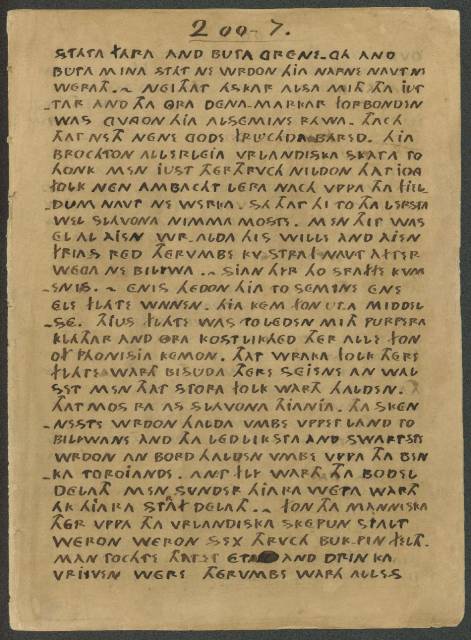 200-7.
STATA FARA AND BUTA GRENE-GA AND
BUTA MINA STAT NE WRDON HIA NARNE NAVT NE
WERATH. ~ NEI THAT ASKAR ALSA MITH THA IUT
-TAR AND THA ORA DENA-MARKAR FORBONDEN
WAS GVNGON HIA ALSEMINE RAWA. THACH
THAT NETH NENE GODE FRUCHDA BARED. HIA
BROCHTON ALLERLEIA VRLANDISKA SKATA TO
HONK MEN IUST THERTHRVCH NILDON THAT IONG
FOLK NEN AMBACHT LERA NACH VPPA THA FIIL
-DUM NAVT NE WERKA. SA THAT HI TO THA LERSTA
WEL SLAVONA NIMMA MOSTE. MEN THIT WAS
EL AL AIEN WR.ALDA HIS WILLE AND AIEN
FRIAS RED THERVMBE KV STRAF NAVT AFTER
WEGA NE BILIWA. ~ SIAN HIR HO STRAFFE KVM
-EN IS. ~ ENIS HEDON HIA TO SEMINE ENE
ELE FLATE WNNEN. HIA KEM FON UTA MIDDEL
-SE. THIUS FLATE WAS TO LEDEN MITH PURPERA
KLATHAR AND ORA KOSTLIKHED THER ALLE FON
OF PHONISIA KEMON. THAT WRAKA FOLK THERE
FLATE WARTH BISUDA THERE SEIENE AN WAL
SET MEN THAT STORA FOLK WARTH HALDEN.
THAT MOS RA AS SLAVONA THIANIA. THA SKEN
-NESTE WRDON HALDA VMBE VPPET LAND TO
BILIWANE AND THA LEDLIKSTA AND SWARTSTE
WRDON AN BORD HALDEN VMBE VPPA THA BEN
-KA TO ROIANDE. AN.T FLI WARTH THA BODEL
DELATH MEN SUNDER HIARA WETA WARTH
AK HIARA STRAF DELATH. ~ FON THA MANNISKA
THER VPPA THA VRLANDISKA SKEPUN STALT
WERON WERON SEX THRVCH BUK-PIN FELTH.
MAN TOCHTE THAT ET ETA AND DRINKA
VRIIVEN WERE THERVMBE WARTH ALLES